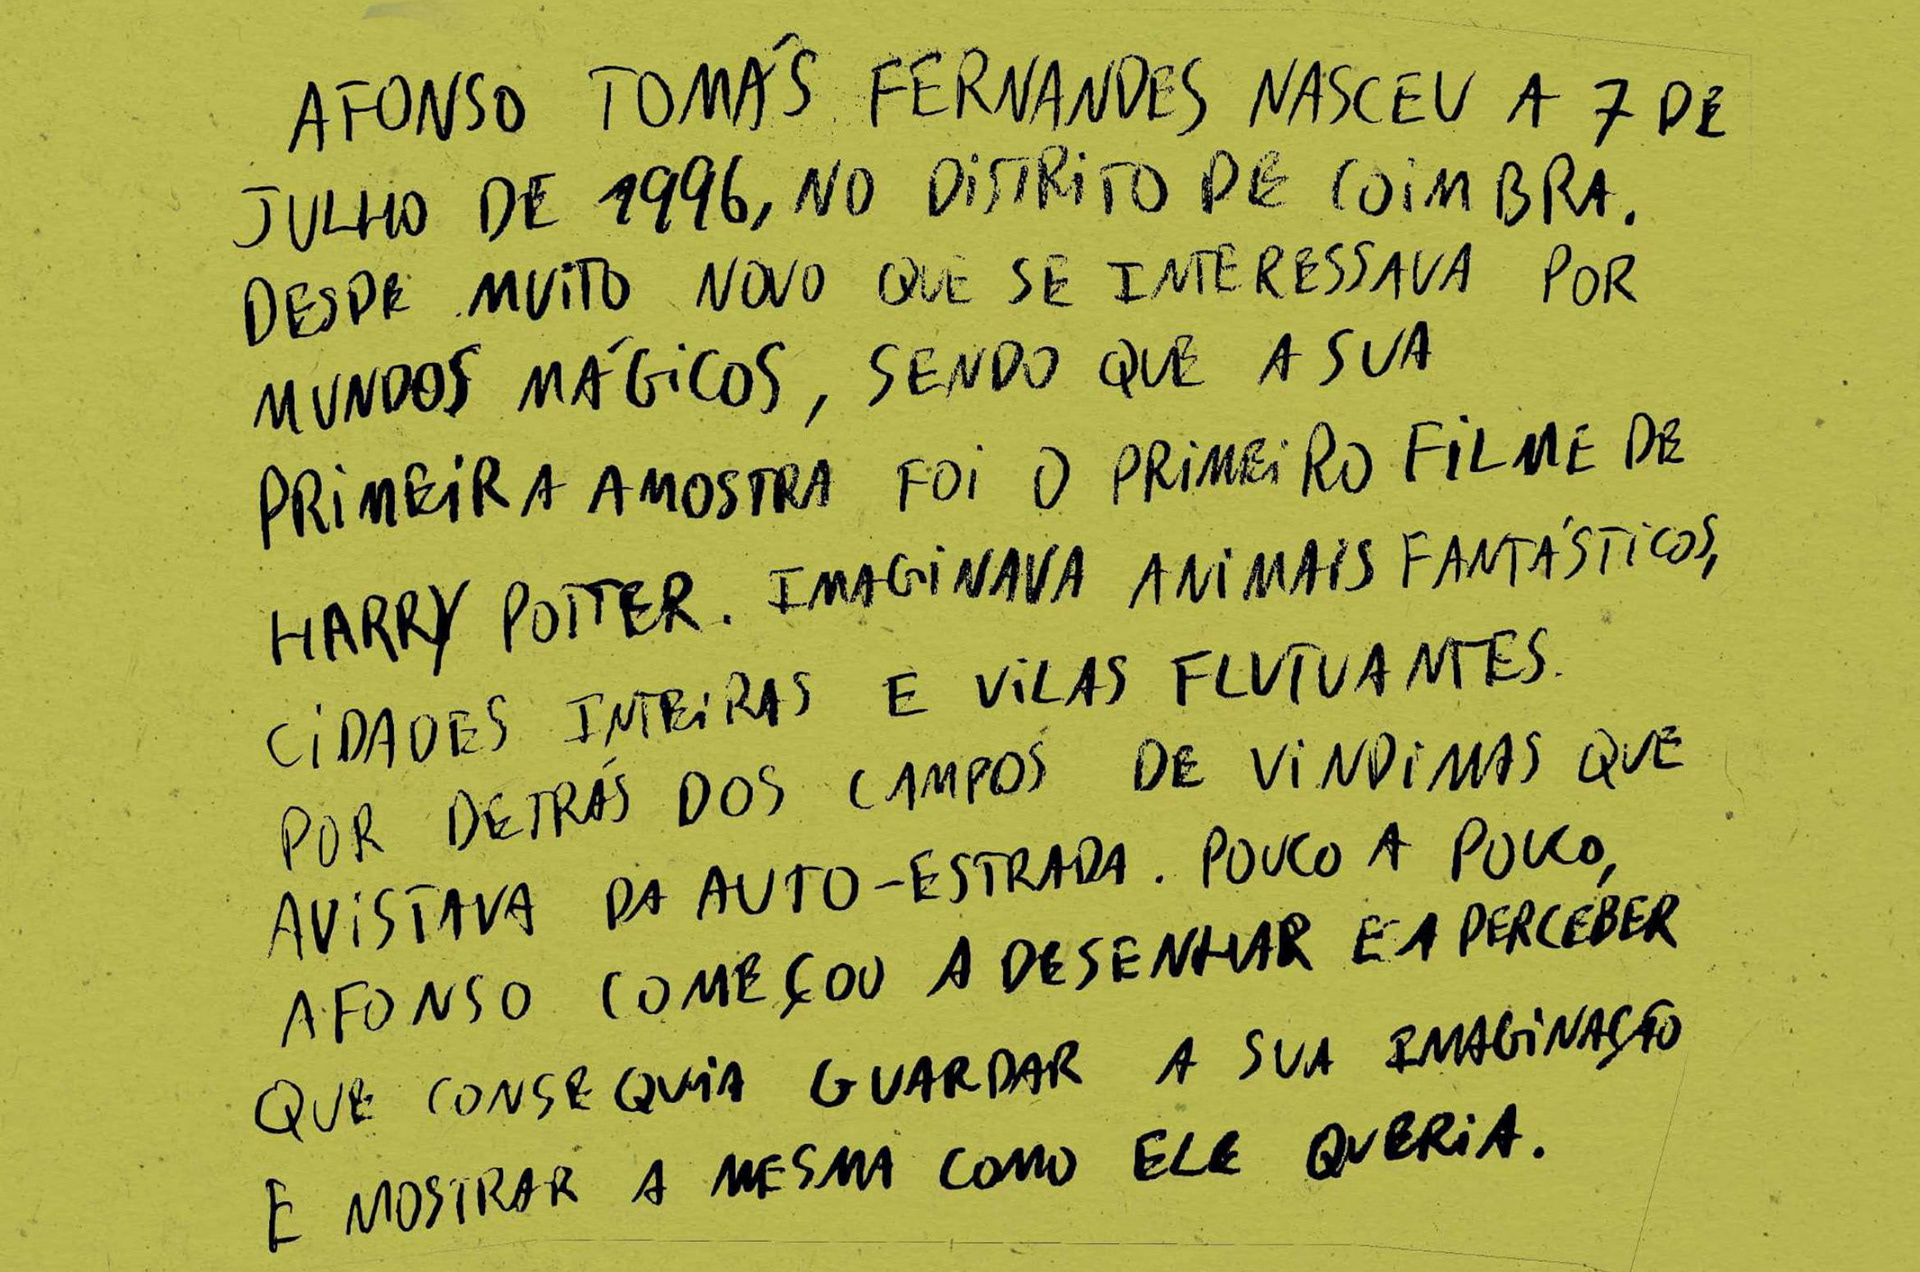 AFONSO TOMÁS FERNANDES NASCEU A 7 DE
JULHO DE 1996, NO DISTRITO DE COIMBRA.
DESDE MUITO NOVO QUE SE INTERESSAVA POR
MUNDOS MÁGICOS, SENDO QUE A SUA
PRIMEIRA AMOSTRA FOI O PRIMEIRO FILME DE
HARRY POTTER. IMAGINAVA ANIMAIS FANTÁSTICOS,
CIDADES INTEIRAS E VILAS FLUTUANTES.
POR DETRÁS DOS CAMPOS DE VINDIMAS QUE
AVISTAVA DA AUTO-ESTRADA. POUCO A POUCO,
AFONSO COMEÇOU A DESENHAR E A PERCEBER
QUE CONSEGUIA GUARDAR A SUA IMAGINAÇÃO
E MOSTRAR A MESMA COMO ELE QUERIA.